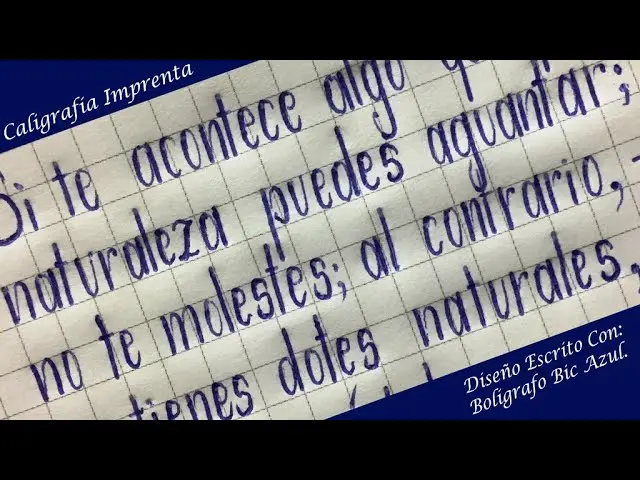 Caligrafía Imprenta
Si te acontece algo
naturaleza puedes aguantar;
no te molestes; al contrario,
tienes dotes naturales,
Diseño Escrito Con:
Boligrafo Bic Azul.